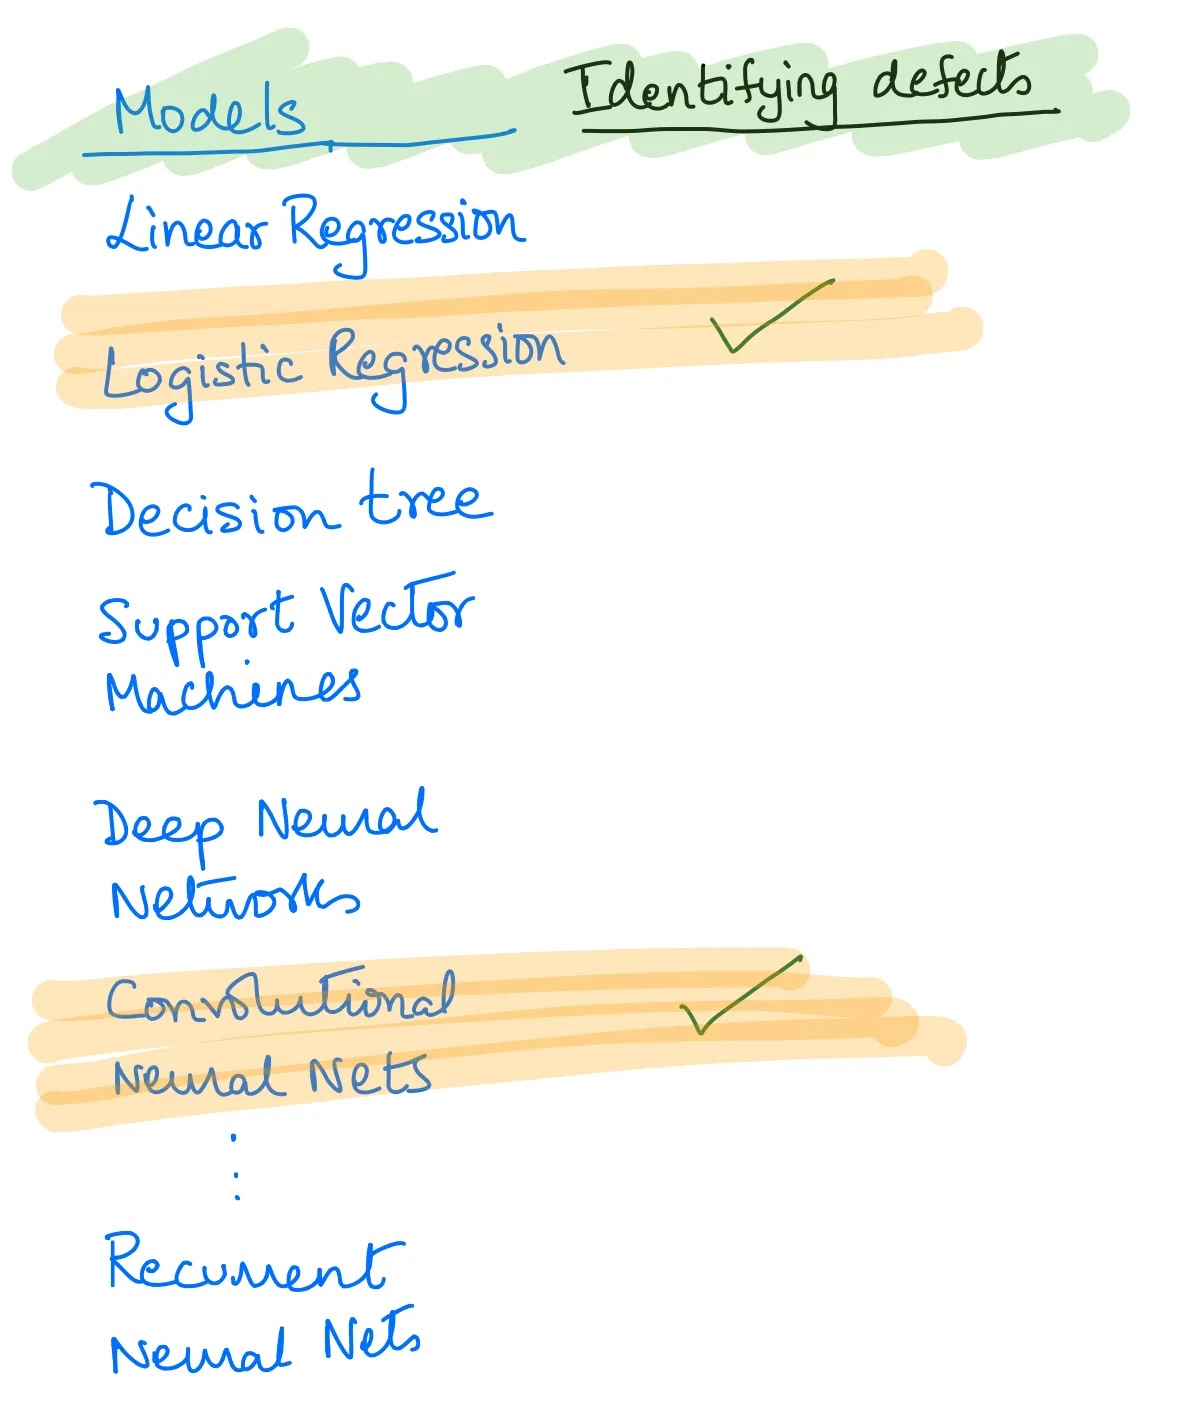 Models Identifying defects
Linear Regression
Logistic Regression
Decision tree
Support Vector
Machines
Deep Neural
Networks
Convolutional
Neural Nets
Recurrent
Neural Nets